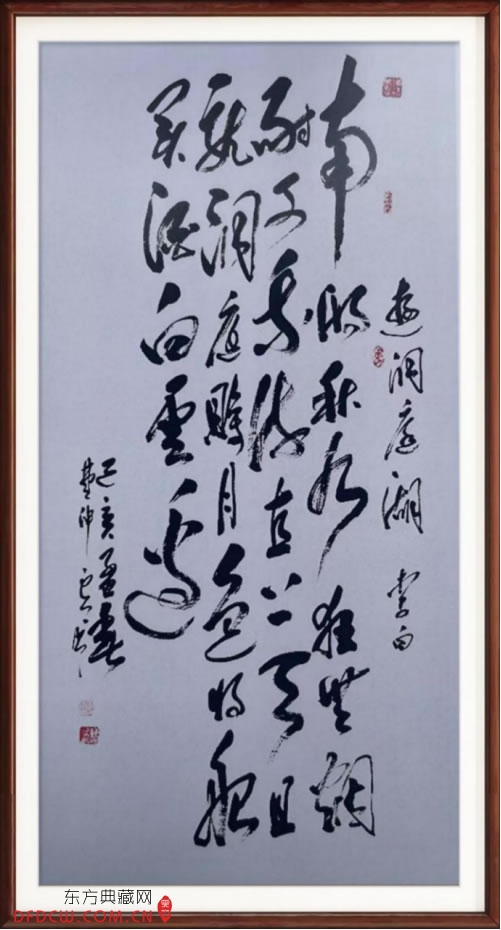 遊洞庭湖 李白
南湖秋水夜無烟
耐可乘流直上天且
就洞庭賒月色將船
買酒白雲邊
己亥孟春
东方典藏网
DFDCW.COM.CN